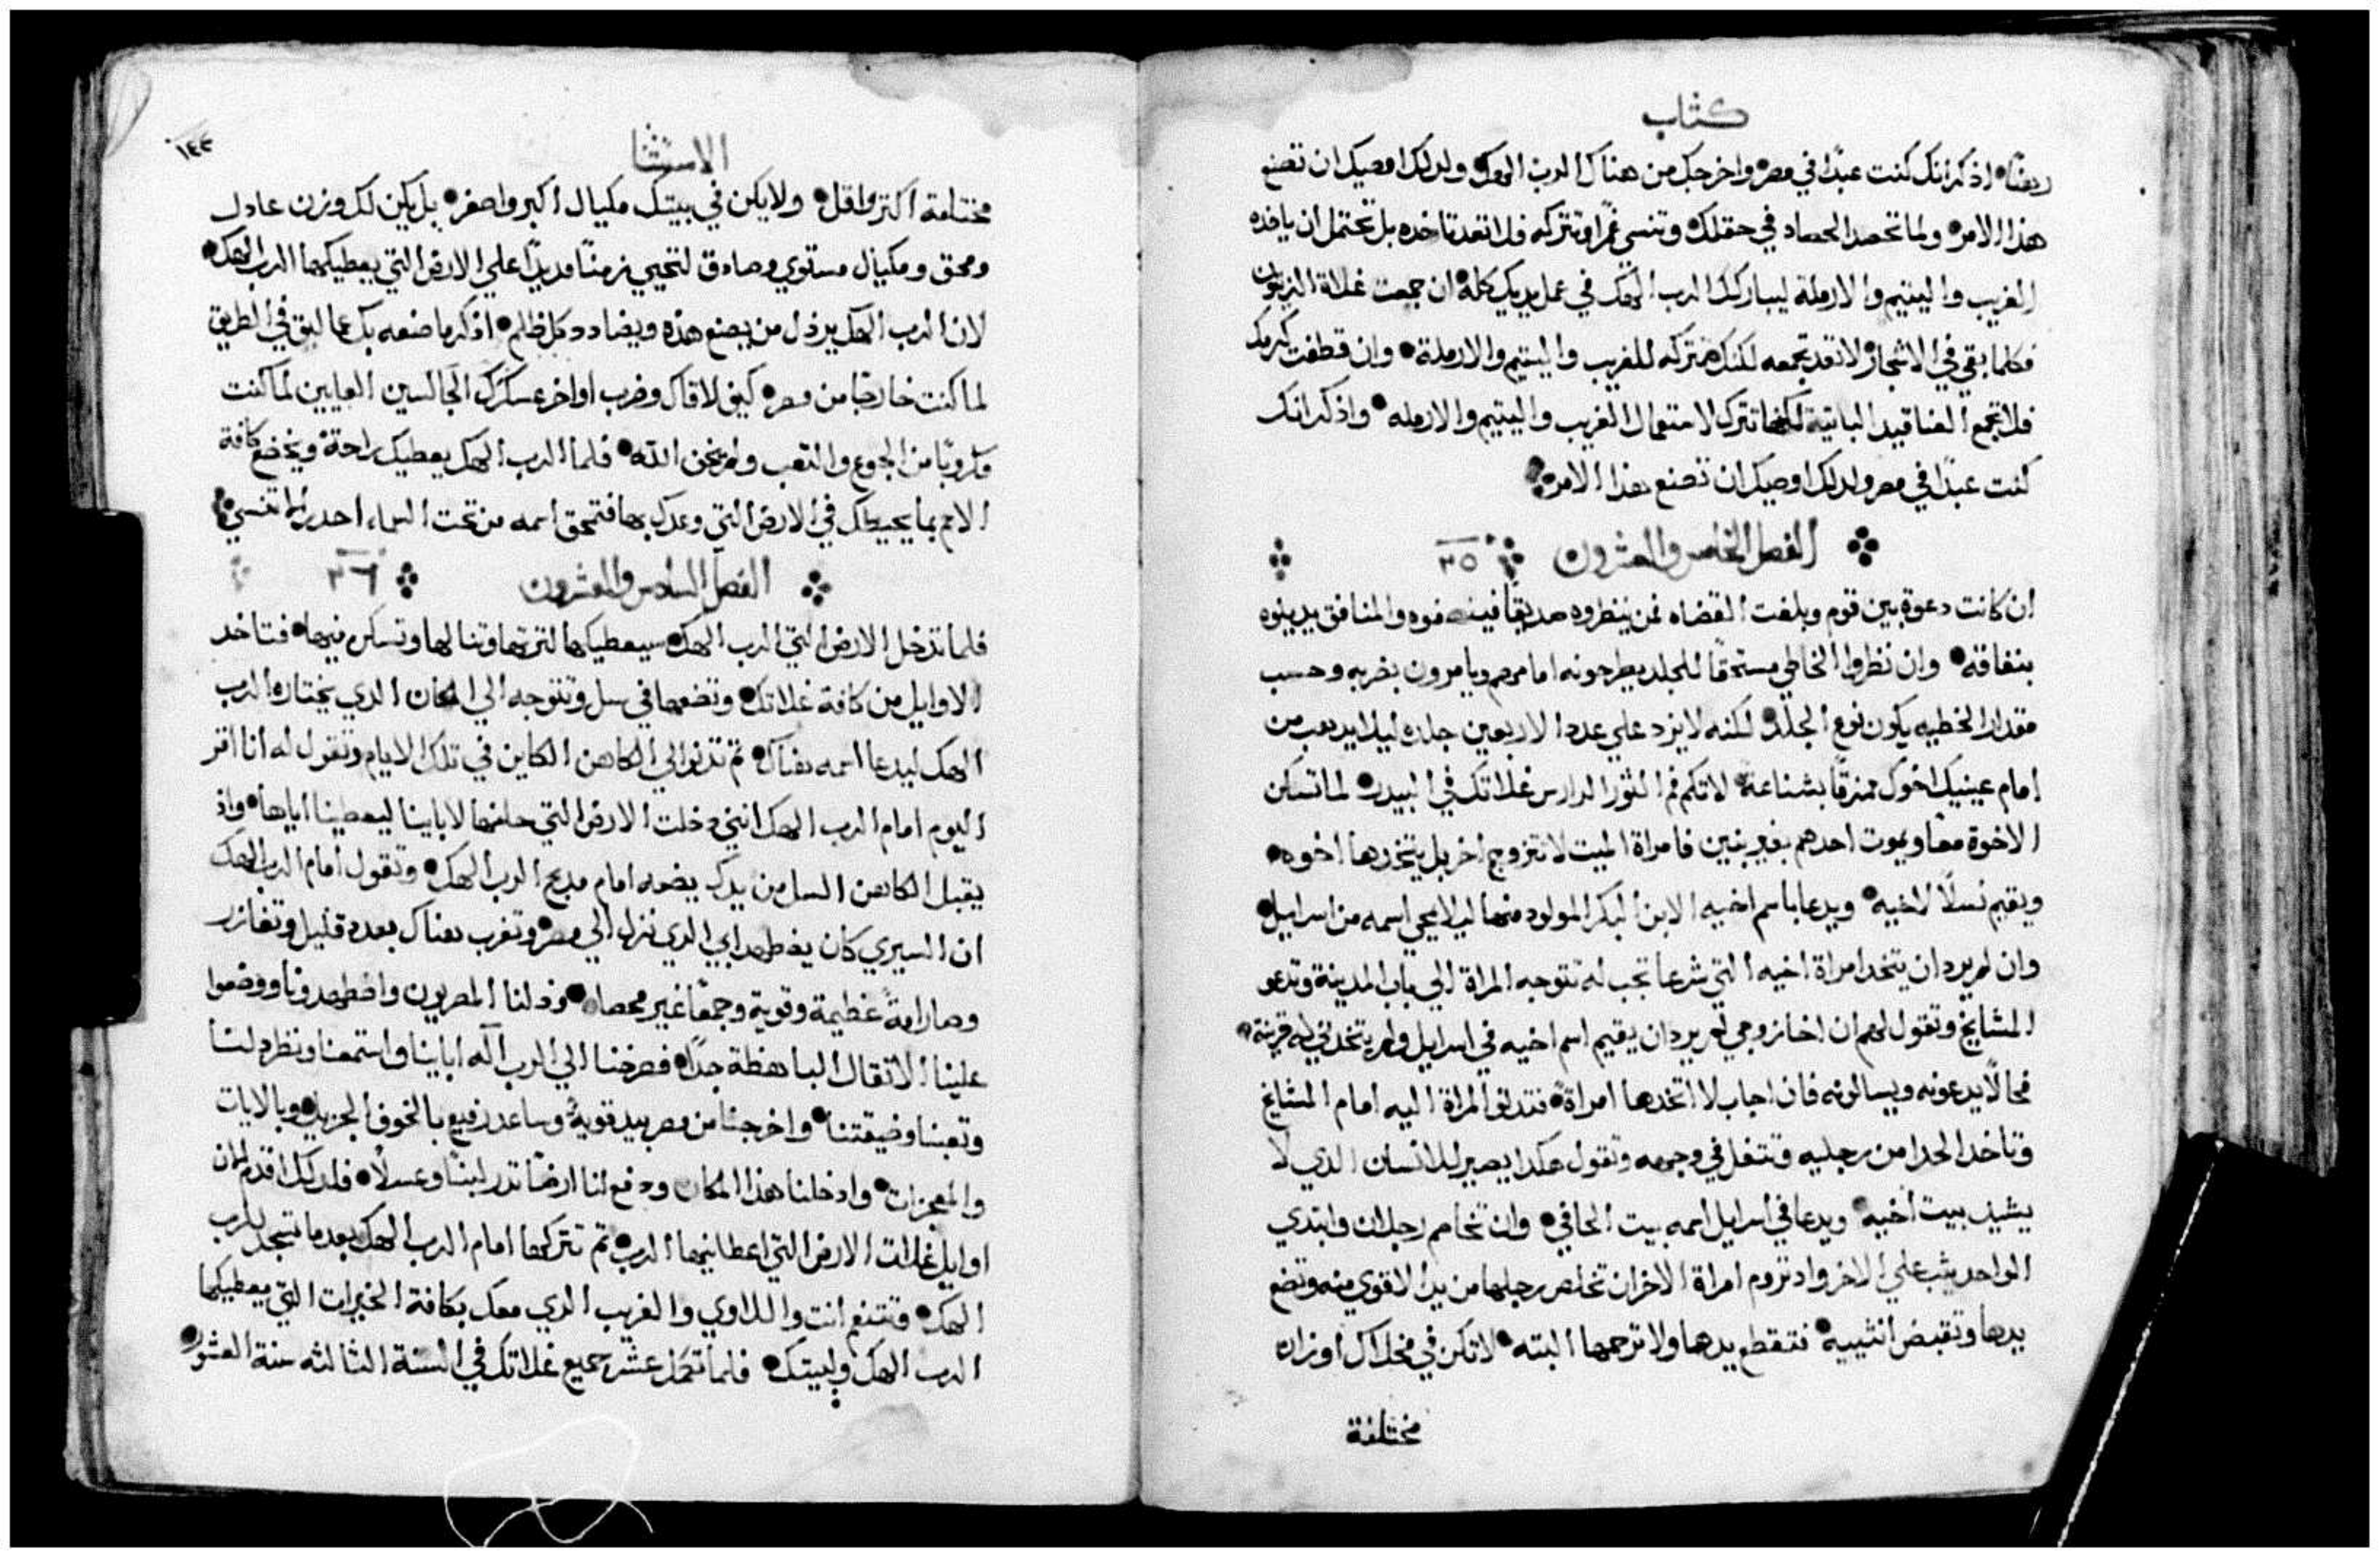 كتاب
رهنًا• اذكر انك كنت عبدًا في مصر• واخرجك من هناك الرب الهك• ولدلك اوصيك ان تصنع
هذا الامر• ولما تحصد الحصاد في حقلك• وتنسي غمرًا وتتركه فلا تعد تاخده بل تحتمل ان ياخده
الغريب واليتيم والارملة ليباركك الرب الهك في عمل يديك كله• ان جمعت غلاة الزيتون
فكلما بقي في الاشجار• لا تعد تجمعه لكنك تتركه للغريب واليتيم والارملة• وان قطفت كرمك
فلا تجمع العناقيد الباقية لكنها تترك لاستعمال الغريب واليتيم والارمله• واذكر انك
كنت عبدًا في مصر ولدلك اوصيك ان تصنع هذا الامر•
الفصل الخامس والعشرون ٢٥
ان كانت دعوة بين قوم وبلغت القضاه فمن ينظروه صديقًا فينصفوه والمنافق يدينوه
بنفاقه• وان نظروا الخاطي مستحقًا للجلد يطرحونه امامهم ويامرون بضربه وحسب
مقدار الخطيه يكون نوع الجلد• لكنه لا يزد علي عدد الاربعين جلده ليلا يدهب من
امام عينيك اخوك ممزقًا بشناعة• لا تكم فم الثور الدارس غلاتك في البيدر• لما تسكن
الاخوة معًا ويموت احدهم بغير بنين فامراة الميت لا تتزوج اخر بل يتخدها اخوه•
ويقيم نسلًا لاخيه• ويدعا باسم اخيه الابن البكر المولود منها ليلا يمحي اسمه من اسراييل•
وان لم يرد ان يتخد امراة اخيه التي شرعا تجب له تتوجه المراة الي باب المدينة وتدعو
المشايخ وتقول لهم ان اخا زوجي لم يرد ان يقيم اسم اخيه في اسراييل ولم يتخدني له قرينة•
فحالًا يدعونه ويسالونه فان اجاب لا اتخدها امراة• فتدنو المراة اليه امام المشايخ
وتاخد الحدا من رجليه وتتفل في وجهه وتقول هكدا يصير للانسان الدي لا
يشيد بيت اخيه• ويدعا في اسراييل اسمه بيت الحافي• وان تخاصم رجلان وابتدي
الواحد يثب علي الاخر واد تروم امراة الاخر ان تخلص رجلها من يد الاقوي منه وتضع
يدها وتقبض انثييه• فتقطع يدها ولا ترحمها البته• لا تكن في مخلاك اوزان
مختلفة
الاستثنا
١٤٣
مختلفة اكتر واقل• ولا يكن في بيتك مكيال اكبر واصغر• بل يكن لك وزن عادل
ومحق ومكيال مستوي وصادق لتحيي زمنًا مديدًا علي الارض التي يعطيكها الرب الهك•
لان الرب الهك يرذل من يصنع هذه ويضادد كل ظالم• اذكر ما صنعه بك عماليق في الطريق
لما كنت خارجًا من مصر• كيف لاقاك وضرب اواخر عسكرك الجالسين العايين لما كنت
مكروبًا من الجوع والتعب ولم يخف الله• فلما الرب الهك يعطيك راحة ويخضع كافة
الامم بما يحيطك في الارض التي وعدك بها فتمحق اسمه من تحت السماء احدر لا تنسي•
الفصل السادس والعشرون ٢٦
فلما تدخل الارض التي الرب الهك سيعطيكها لترتها وتنالها وتسكن فيها• فتاخد
الاوايل من كافة غلاتك• وتضعها في سل وتتوجه الي المكان الدي يختاره الرب
الهك ليدعا اسمه هناك• تم تدنو الي الكاهن الكاين في تلك الايام وتقول له انا اقر
اليوم امام الرب الهك انني دخلت الارض التي حلفها لاباينا ليعطينا اياها• واذ
يقبل الكاهن السل من يدك يضعه امام مدبح الرب الهك• وتقول امام الرب الهك
ان السيري كان يضطهد ابي الدي نزل الي مصر• وتغرب هناك بعدد قليل وتغازر
وصار امةً عظيمة وقوية وجمعًا غير محصا• وذلنا المصريون واضطهدونا ووضعوا
علينا الاتقال الباهظة جدًا• فصرخنا الي الرب اله اباينا واستمعنا ونظر دلنا
وتعبنا وضيقتنا• واخرجنا من مصر بيد قوية• وساعد رفيع بالخوف الجزيل• وبالايات
والمعجزات• وادخلنا هذا المكان ودفع لنا ارضًا تدر لبنًا وعسلًا• فلدلك اقدم الان
اوايل غلات الارض التي اعطانيها الرب• تم تتركها امام الرب الهك• بعد ما تسجد للرب
الهك• فتتنعم انت واللاوي والغريب الدي معك بكافة الخيرات التي يعطيكها
الرب الهك ولبيتك• فلما تكمل عشر جميع غلاتك في السنة التالثه سنة العشور•